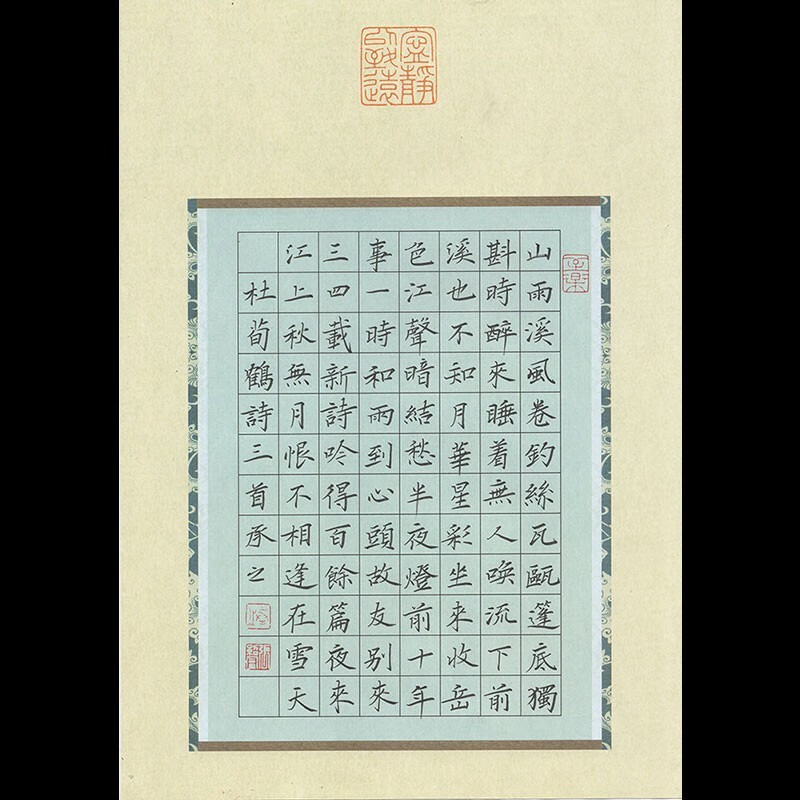 寧靜致遠
山雨溪風卷釣絲瓦甌篷底獨
斟時醉來睡着無人喚流下前
溪也不知月華星彩坐來收岳
色江聲暗結愁半夜燈前十年
事一時和雨到心頭故友別來
三四載新詩吟得百餘篇夜來
江上秋無月恨不相逢在雪天
杜荀鶴詩三首承之